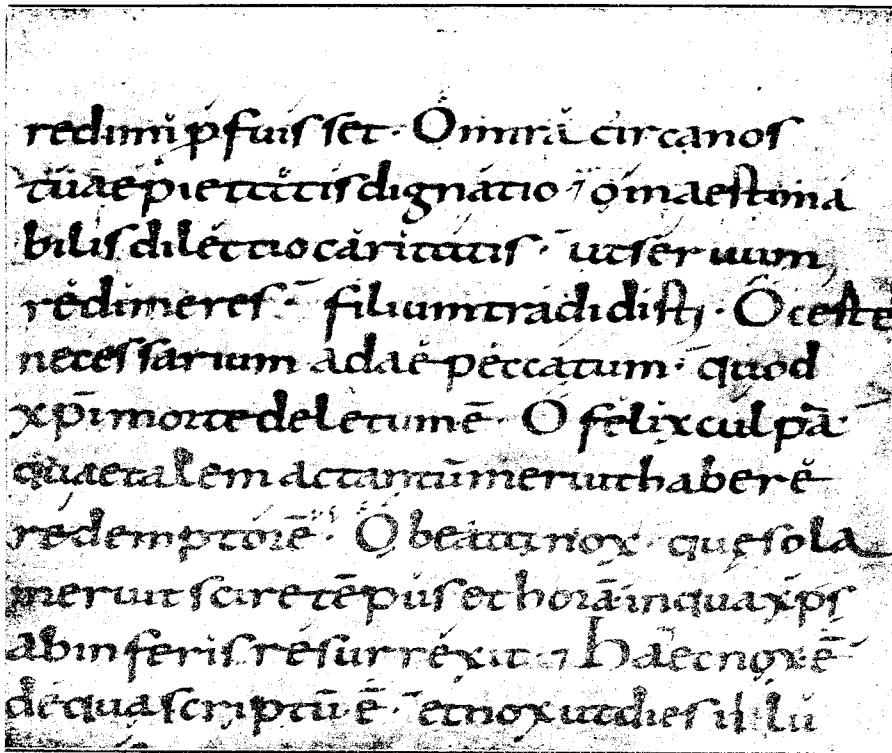 redimi p̄fuisset · O mira circa nos
tuae pietatis dignatio · o inaestima
bilis dilectio caritatis · ut seruum
redimeres · filium tradidisti · O certe
necessarium adae peccatum · quod
xpi morte deletum ē · O felix culpa ·
quae talem ac tantū meruit habere
redemptorē · O beata nox · quę sola
meruit scire tēpus et horā in qua xps
ab inferis resurrexit · Haec nox ē
de qua scriptū ē · et nox ut dies illu